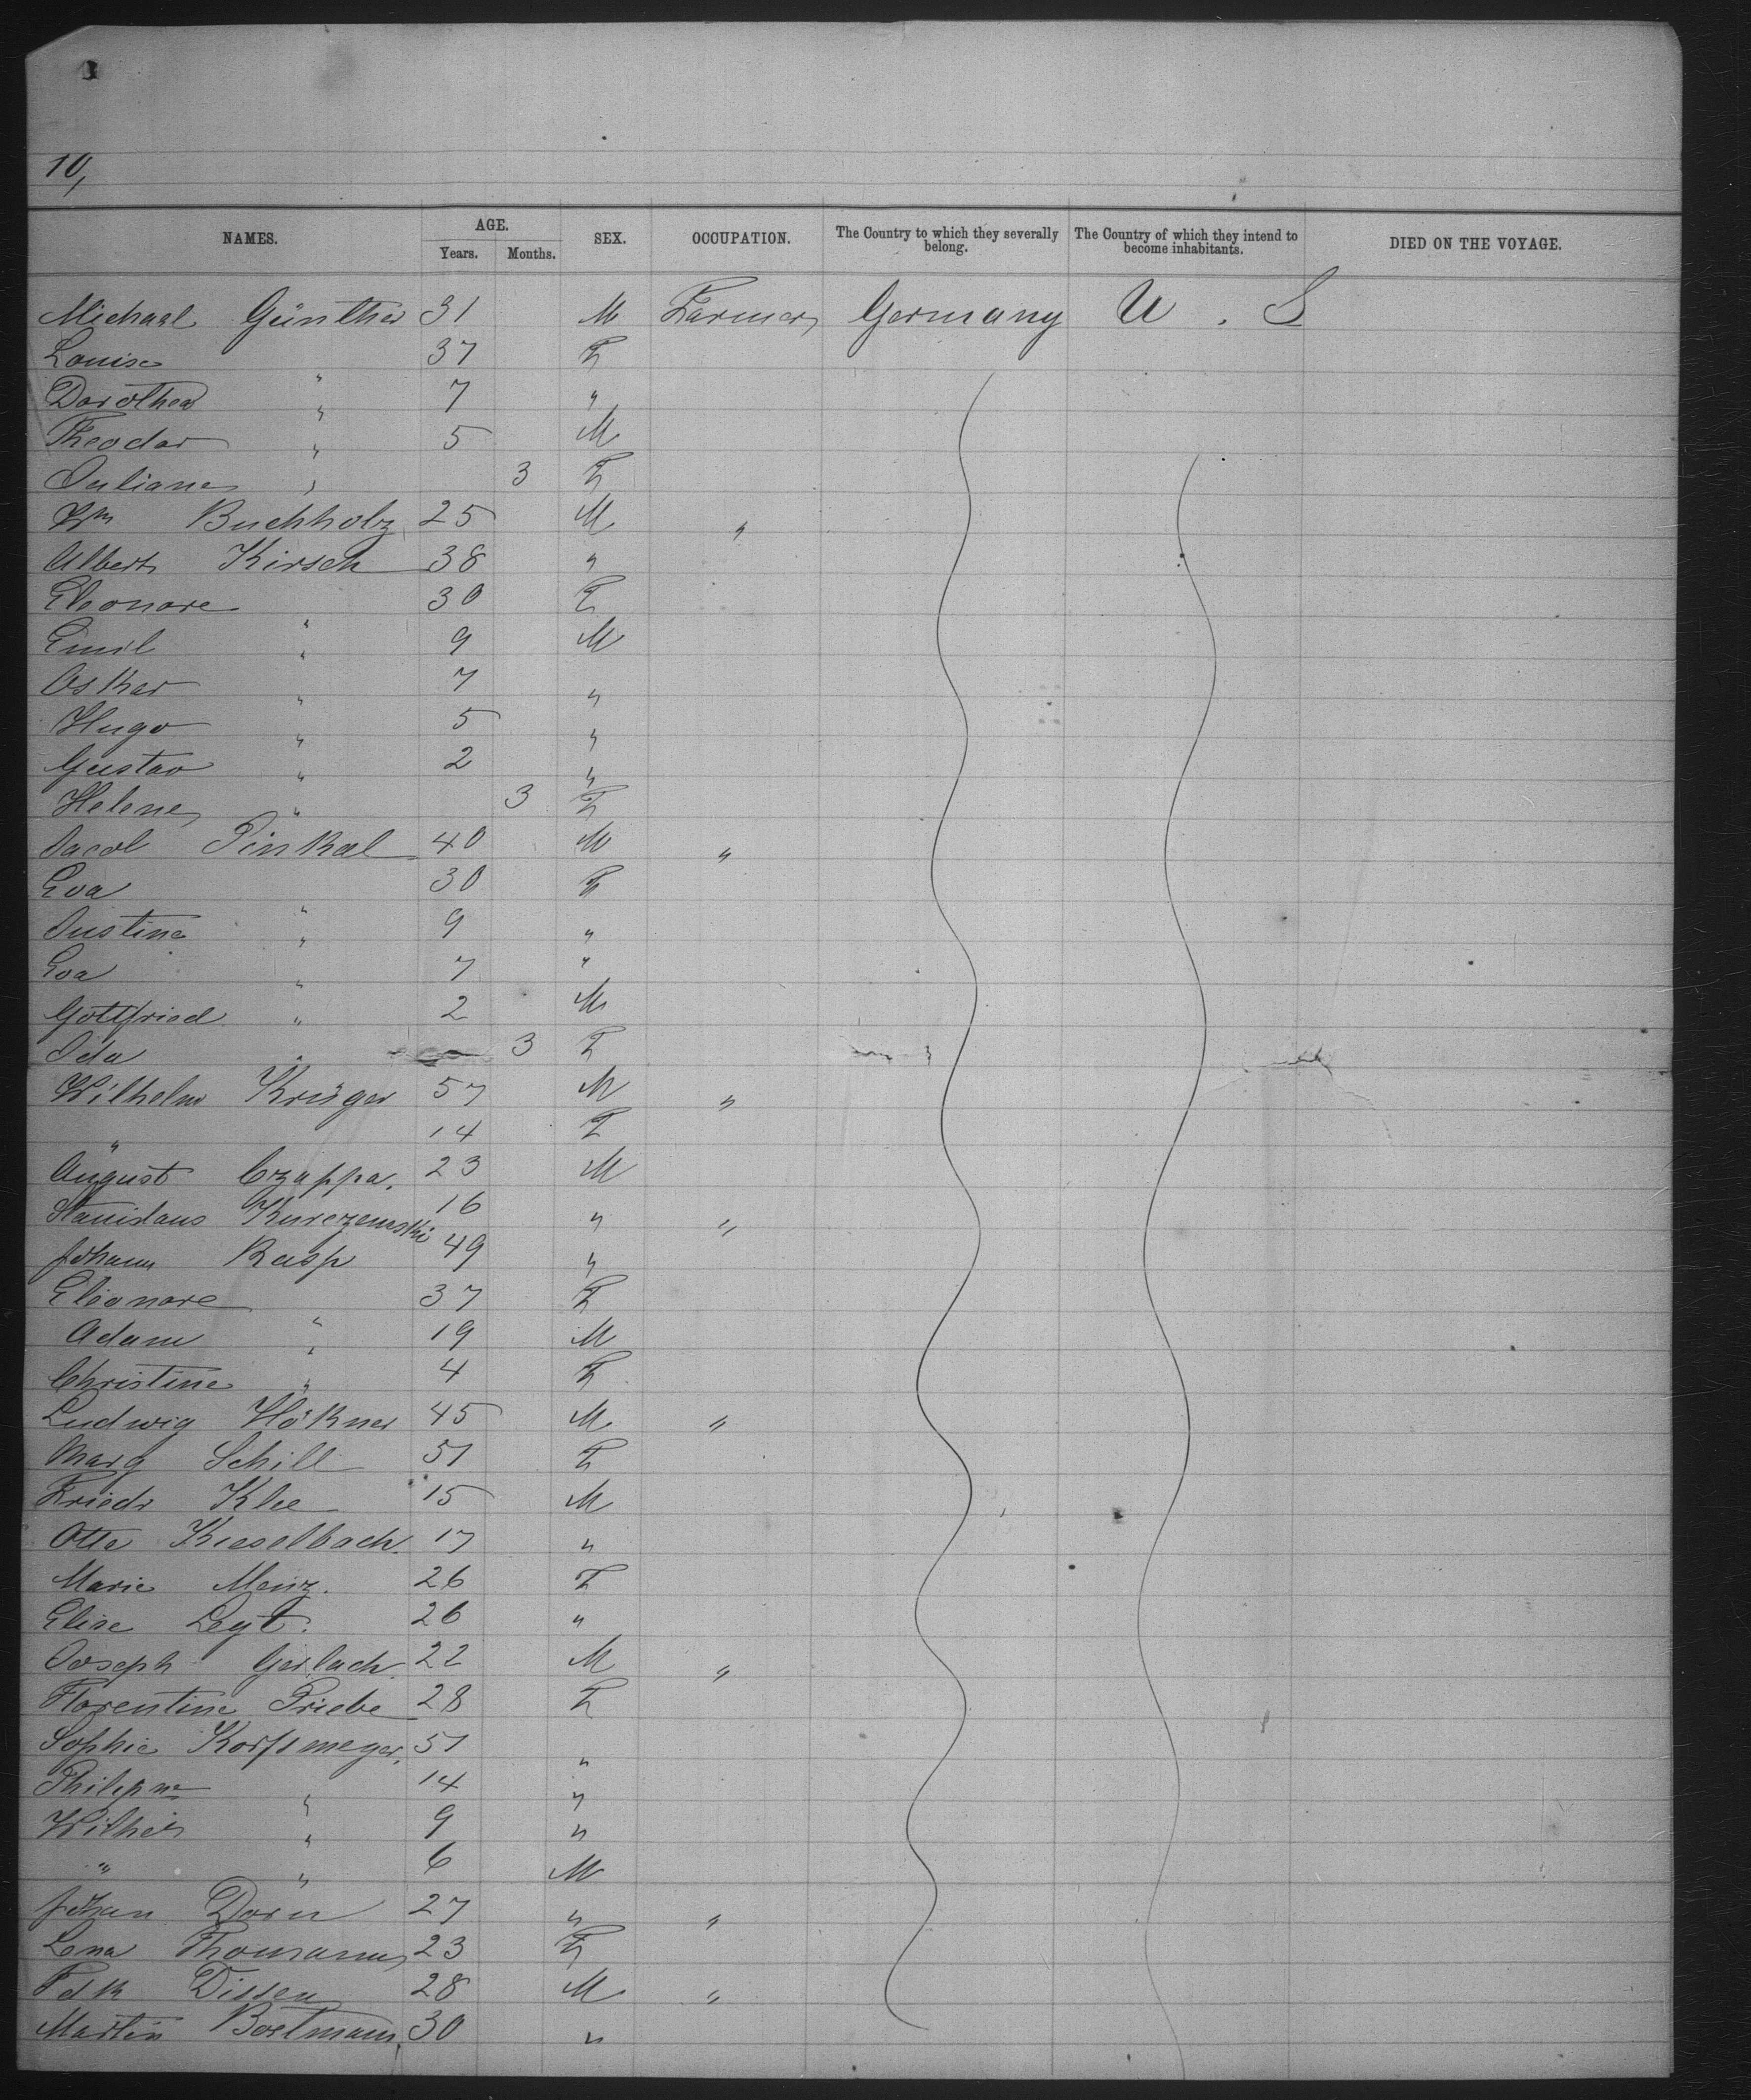 10,
NAMES. AGE. SEX. OCCUPATION. The Country to which they severally belong. The Country of which they intend to become inhabitants. DIED ON THE VOYAGE.
Years. Months.
Michael Günther 31 M Farmer Germany U. S
Louise " 37 F
Dorothea " 7 "
Theodor " 5 M
Juliane " 3 F
Wm Buchholz 25 M "
Albert Kirsch 38 "
Eleonore " 30 F
Emil " 9 M
Oskar " 7 "
Hugo " 5 "
Gustav " 2 "
Helene " 3 F
Jacob Pinkal 40 M "
Eva " 30 F
Justine " 9 "
Eva " 7 "
Gottfried " 2 M
Ida " 3 F
Wilhelm Krüger 57 M "
" 14 F
August Czappa. 23 M
Stanislaus Kurczewski 16 " "
Johann Rasp 49 "
Eleonore " 37 F
Adam " 19 M
Christine " 4 F
Ludwig Hökner 45 M "
Marg Schill 51 F
Friedr Klee 15 M
Otto Kieselbach. 17 "
Marie Menz. 26 F
Elise 26 "
Joseph Gerlach. 22 M "
Florentine Priebe 28 F
Sophie Korfsmeyer. 51 "
Philipne " 14 "
" 9 "
" " 6 M
Johan Dorn 27 " "
Lena Thomann 23 F
Fdk Dissen 28 M "
Martin Bostmann. 30 "